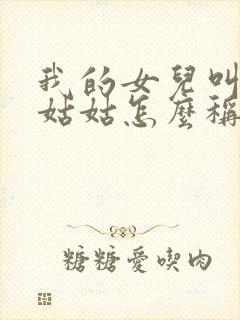 我的女兒叫
姑姑怎麼稱
糖糖愛喫肉